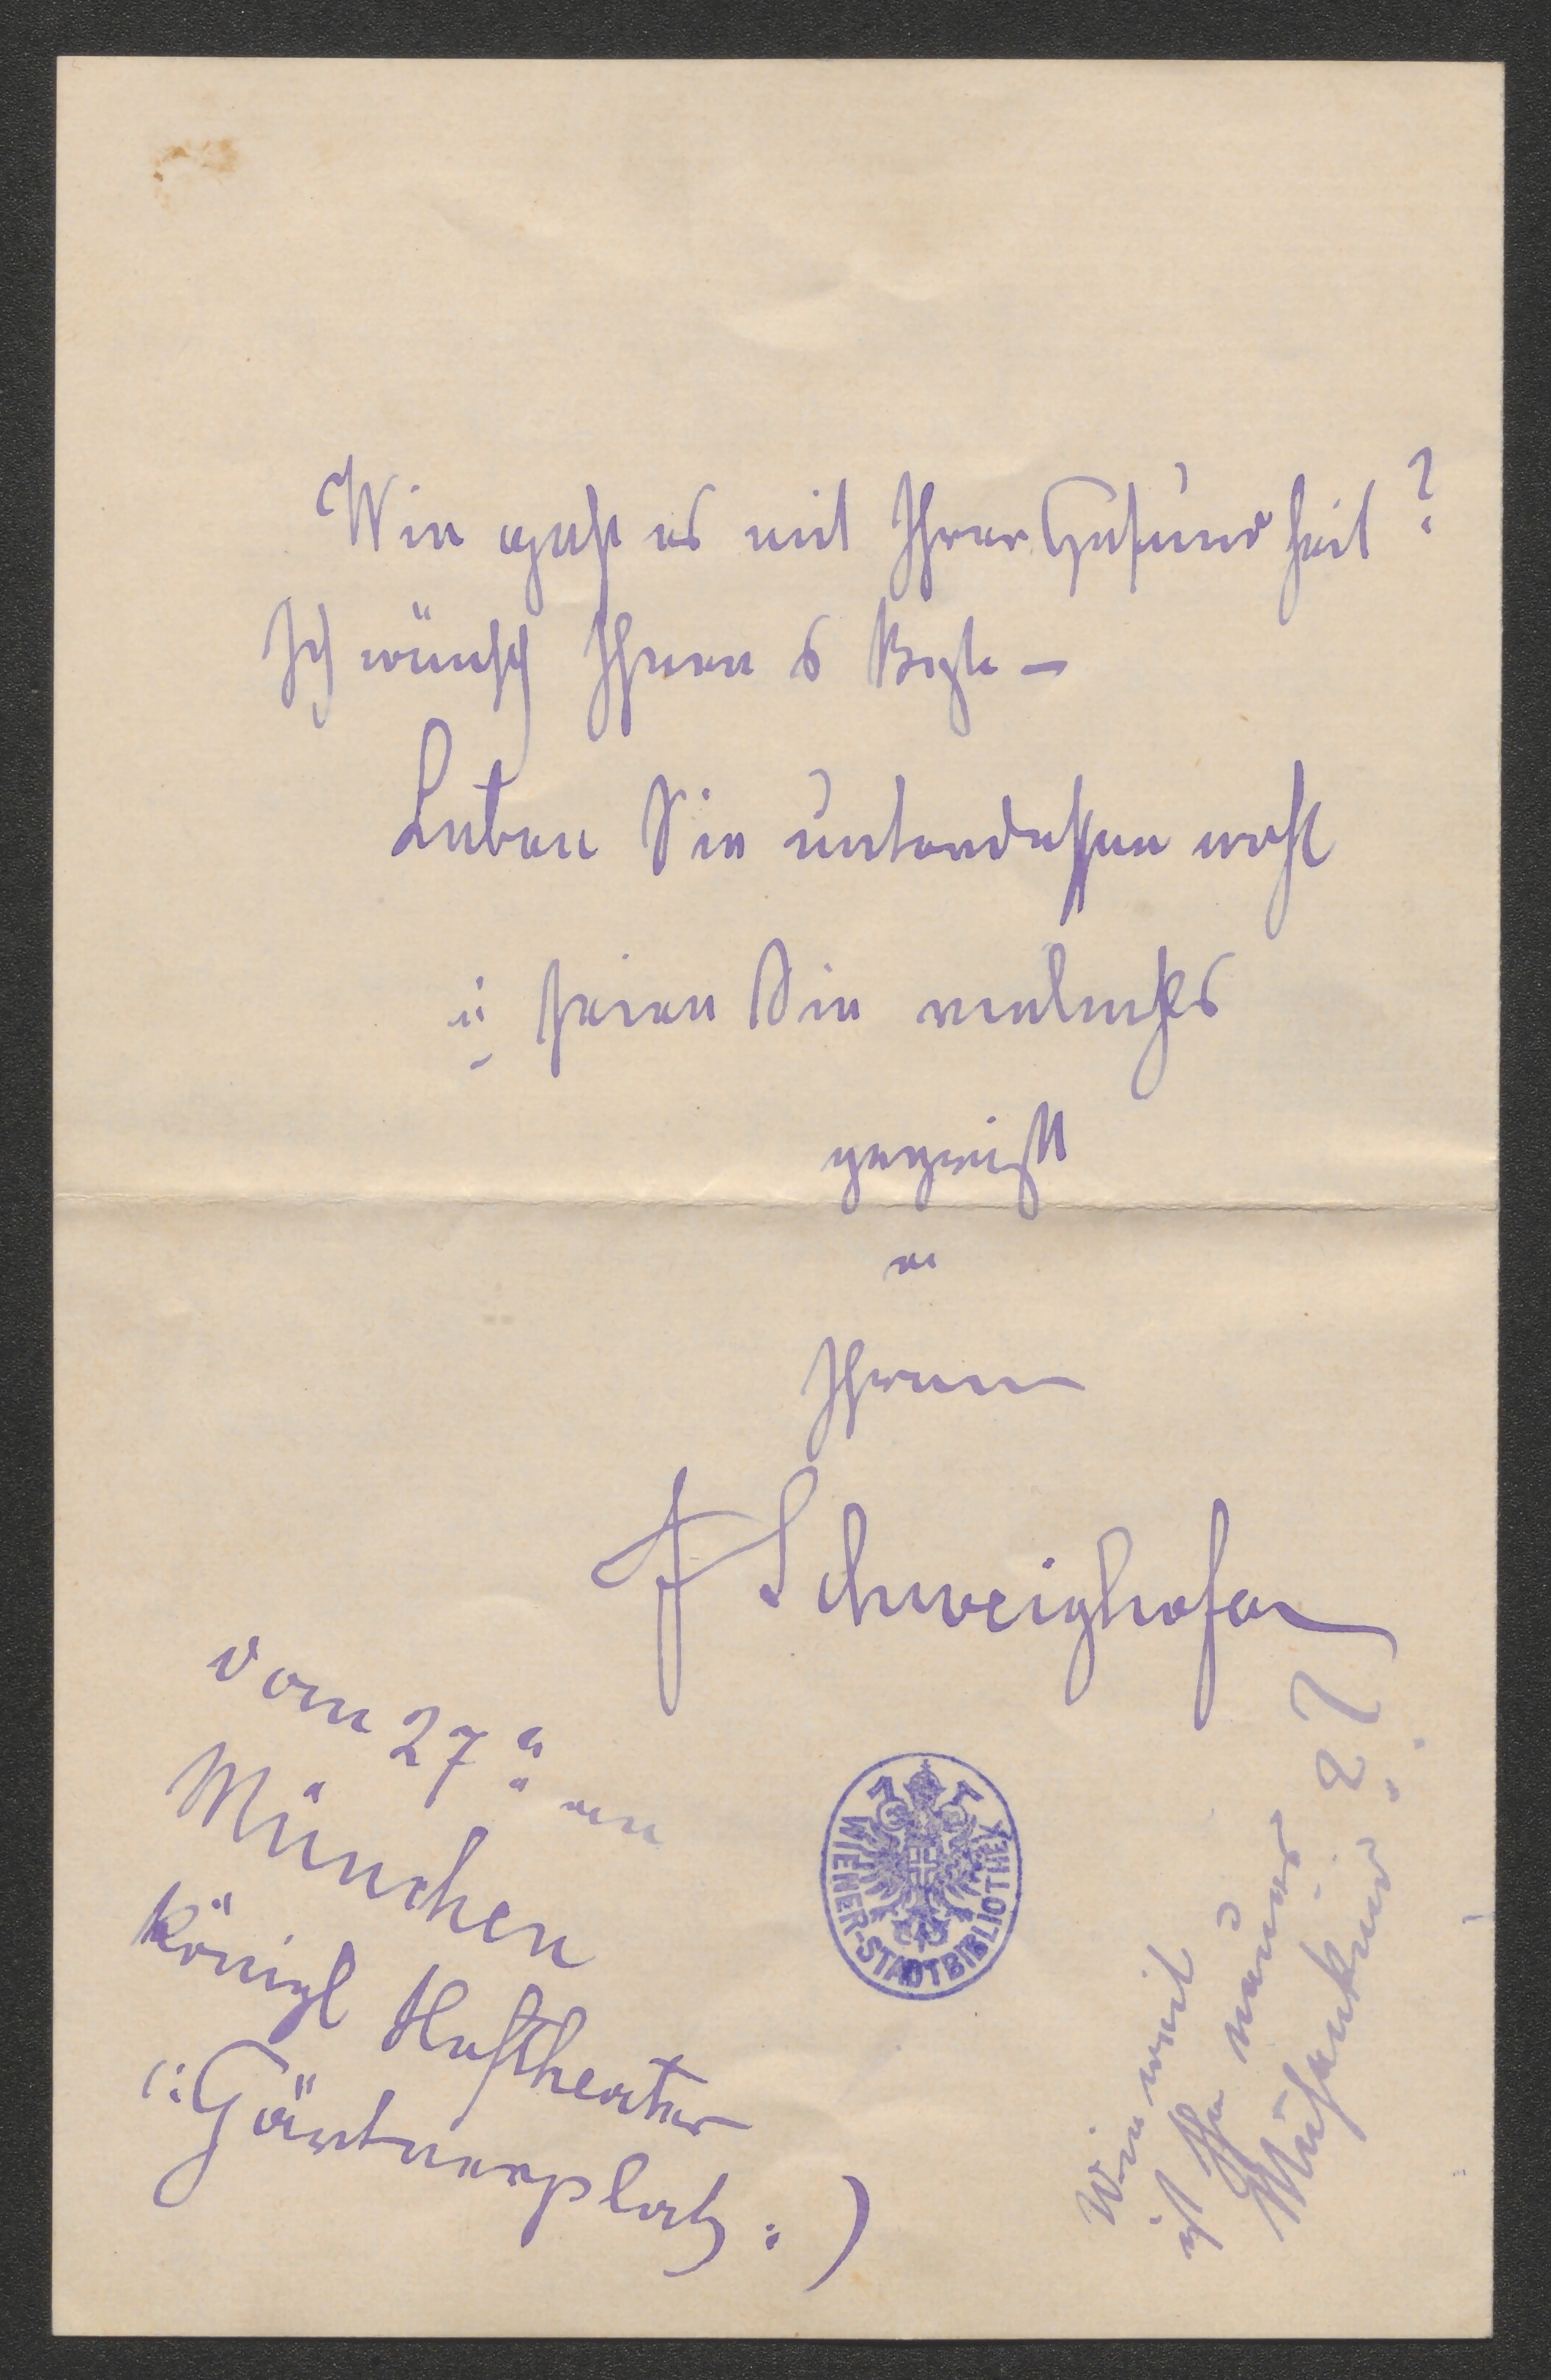 Wie geht es mit Ihrer Gesundheit?
Ich wünsch Ihnen s Beste –
Leben Sie unterdessen wohl
u seien Sie
gegrüßt
v
Ihrem
F Schweighofer
vom 27: an
München
Königl Hoftheater
(: Gärtnerplatz :)
WIENER-STADTBIBLIOTHEK
Wie weit
ist Ihr neues
Musenkind??